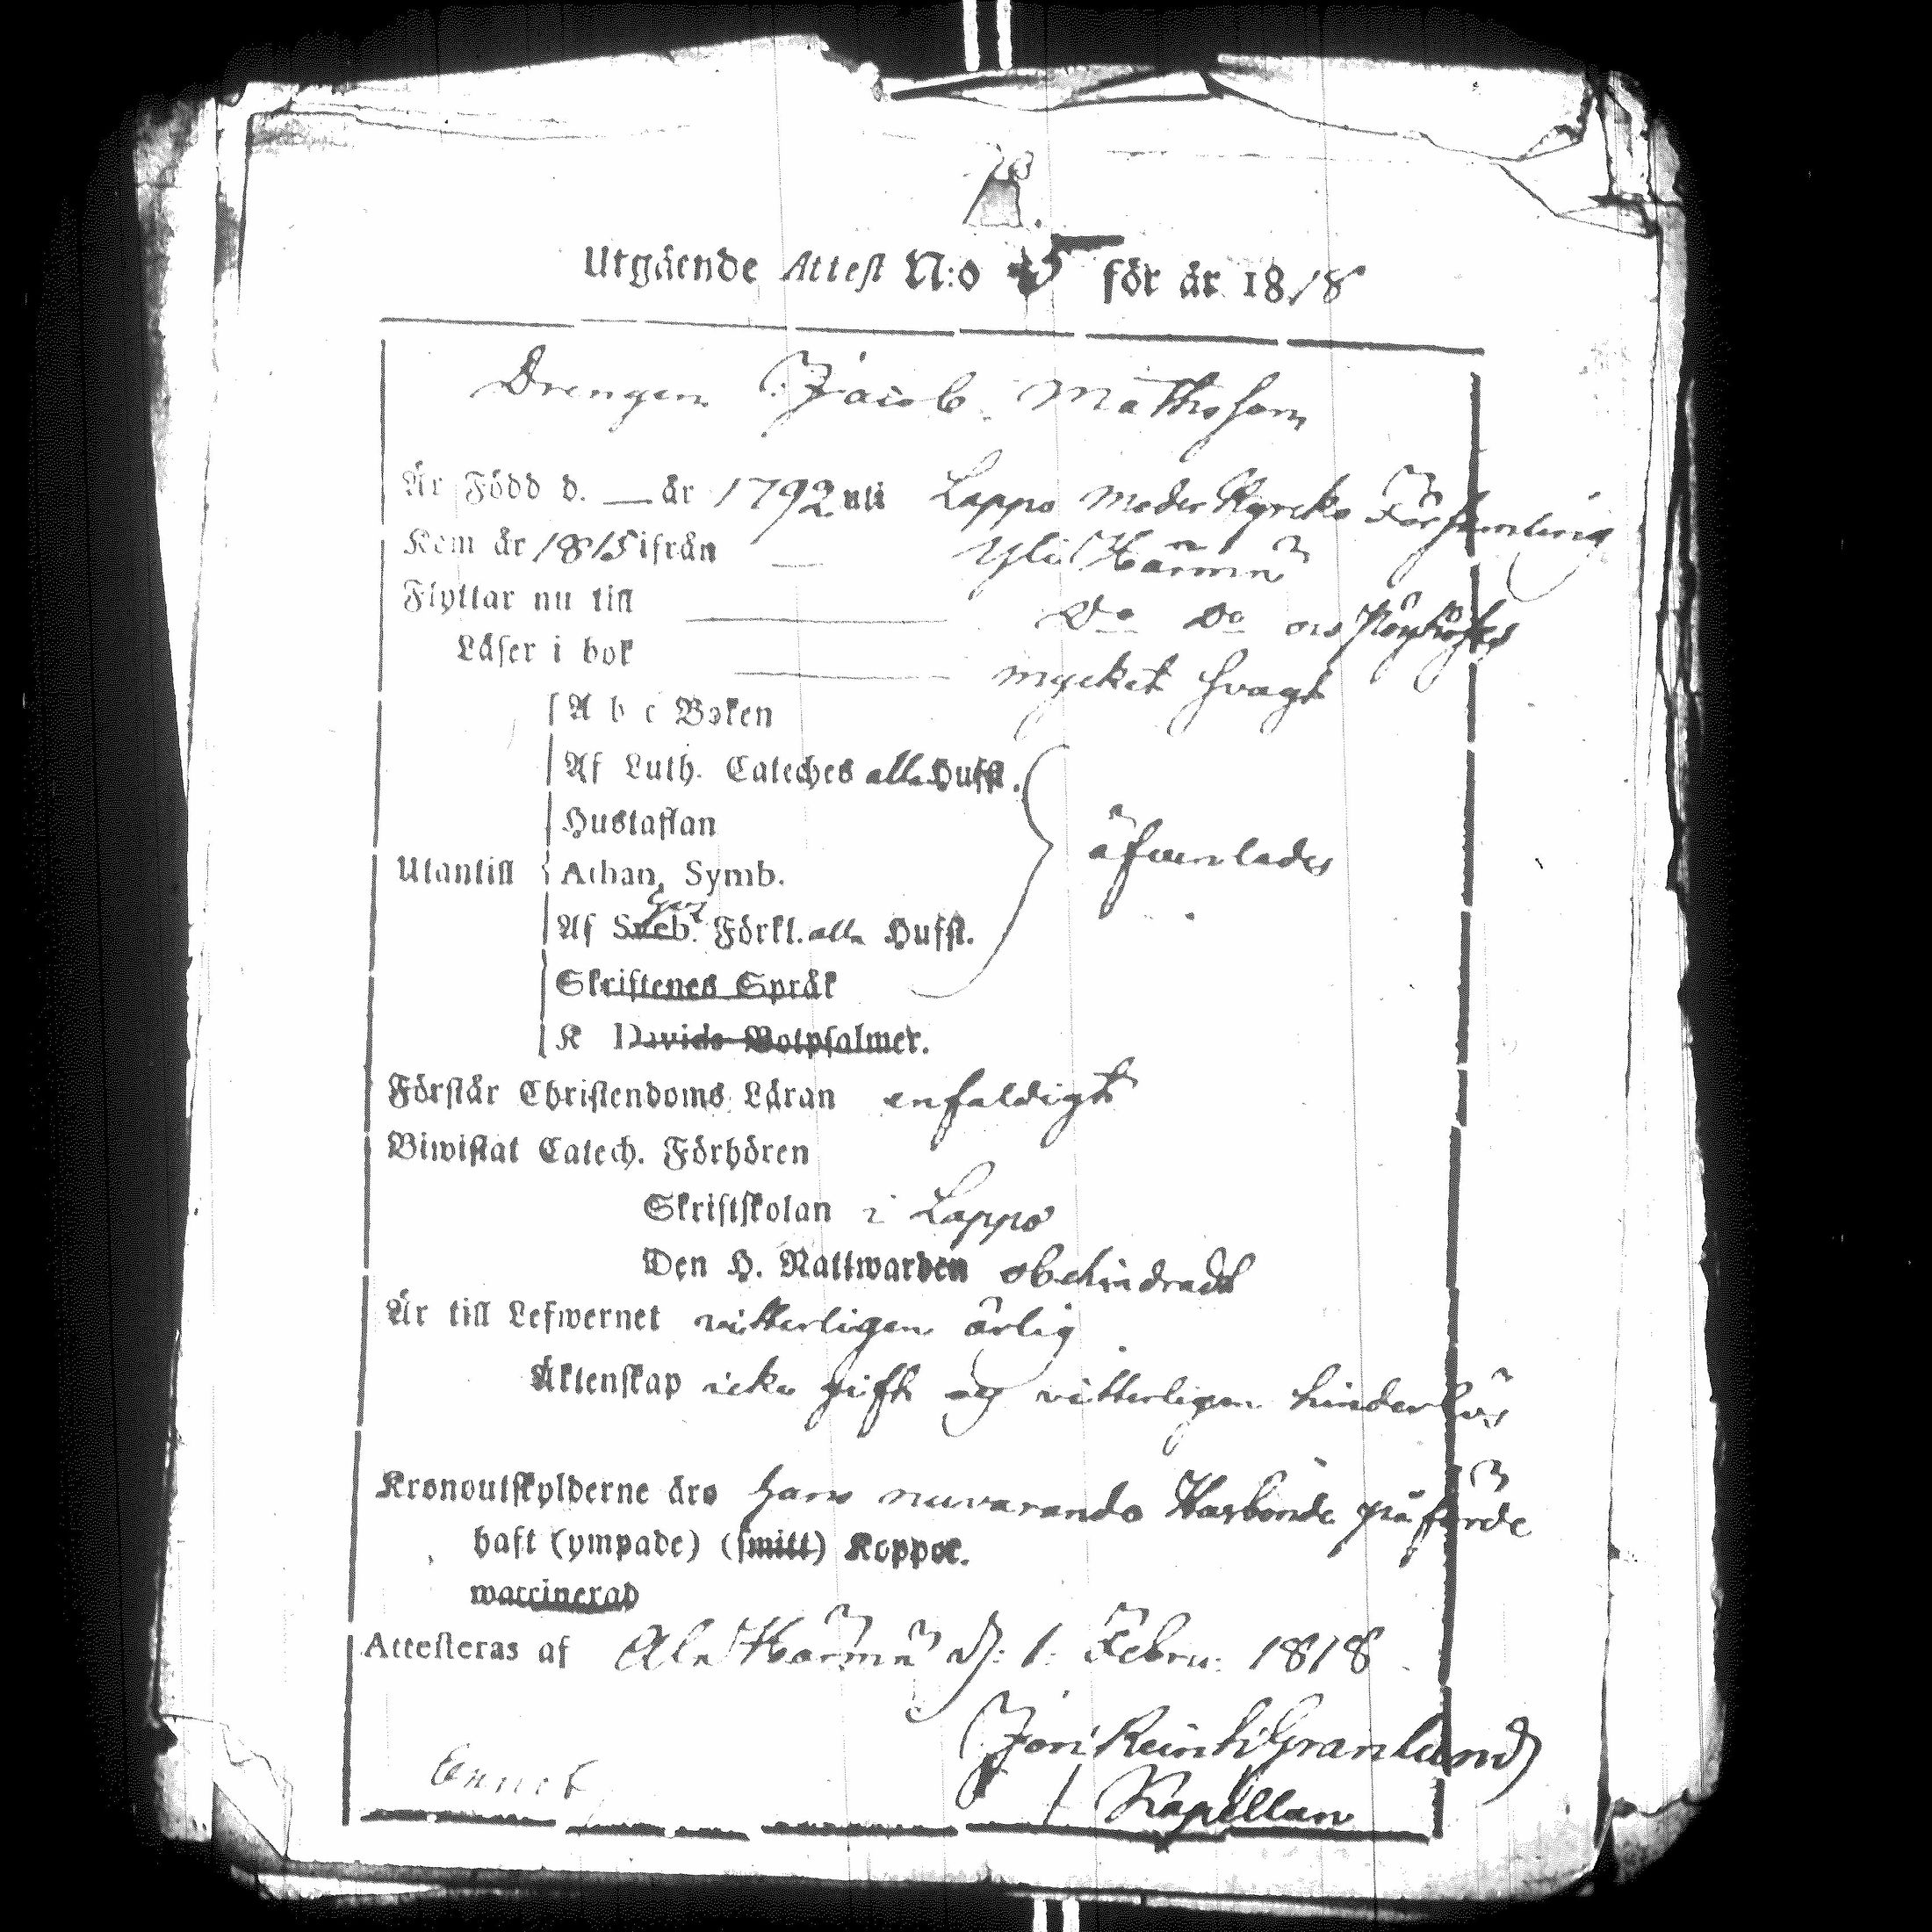 Utgående Attest N:o 45 för år 1818
Drengen Jacob Mathsson
Är Född d. — år 1792 uti Lappo Moder Kyrcko Församling
Kom år 1815 ifrån — Yli Härmä
Flyttar nu till — Do Do
Läser i bok — mycket svagt
A b c Boken
Af Luth. Cateches alla Hufst.
Hustaflan
äfvenledes
Utantill Athan. Symb.
Af Sveb. Förkl. alla Hufst.
Skriftenes Språk
K Davids Botpsalmer.
Förstår Christendoms Läran enfaldigt
Biwistat Catech. Förhören
Skriftskolan i Lappo
Den H. Nattwarden obehindradt
Är till Lefwernet vitterligen ärlig
Äktenskap icke gift og vitterligen hinderlös
Kronoutskylderne äro hans nuvarande Husbonde påförde
haft (ympade) (smitt) Koppor.
waccinerad
Attesteras af Ala Härmä d: 1. Febru: 1818
Joh: Reinh: Granlund
Kapellan